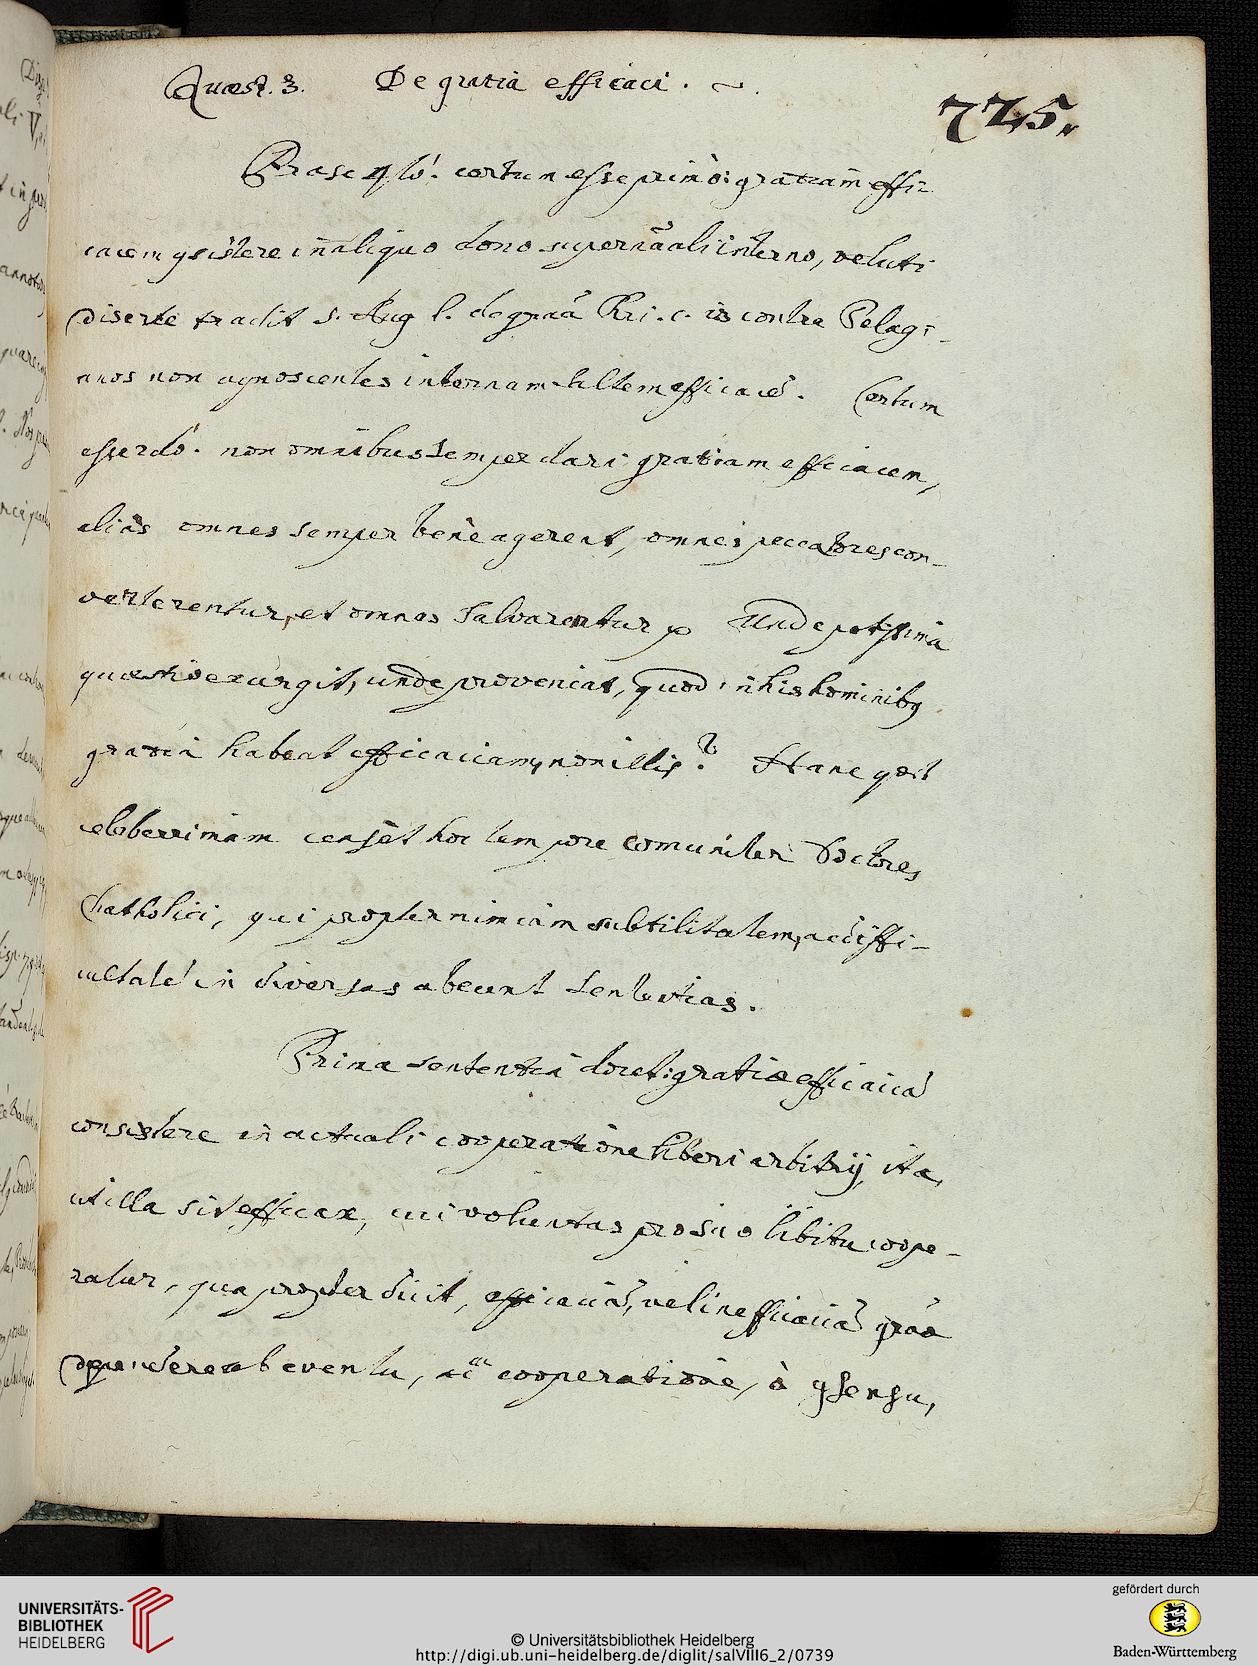 Quæst. 3. De gratia efficaci.
725.
certum esse primò: gratiam effi-
cacem 9sistere in aliquo dono supernãali interno, veluti
diserte tradit S. Aug l. de graã Xri. c. contra Pelagi-
anos non agnoscentes internam saltem efficacẽ. Certum
esse 2dò. non omnibus semper dari gratiam efficacem,
aliàs omnes semper benè agerent, omnes peccatores con-
verterentur, et omnes salvarentur Unde potissima
quæstio exurgit, unde proveniat, quod in his hominib9
gratia habeat efficaciam, non in illis? Hanc
celeberrimam censent hoc tempore comuniter Doctores
Catholici, qui propter nimiam subtilitatem, ac diffi-
cultatẽ in diversas abeunt sententias.
Prima sententia docet: gratiæ efficaciã
consistere in actuali cooperatione liberi arbitrij, ita,
ut illa sit efficax, cui voluntas pro suo libitu coope-
ratur, qua propter dicit, efficaciã, vel inefficaciã graã
dependere ab eventu, ac cooperatione, à 9sensu,
UNIVERSITÄTS-
BIBLIOTHEK
HEIDELBERG
© Universitätsbibliothek Heidelberg
http://digi.ub.uni-heidelberg.de/diglit/salVIII6_2/0739
gefördert durch
Baden-Württemberg